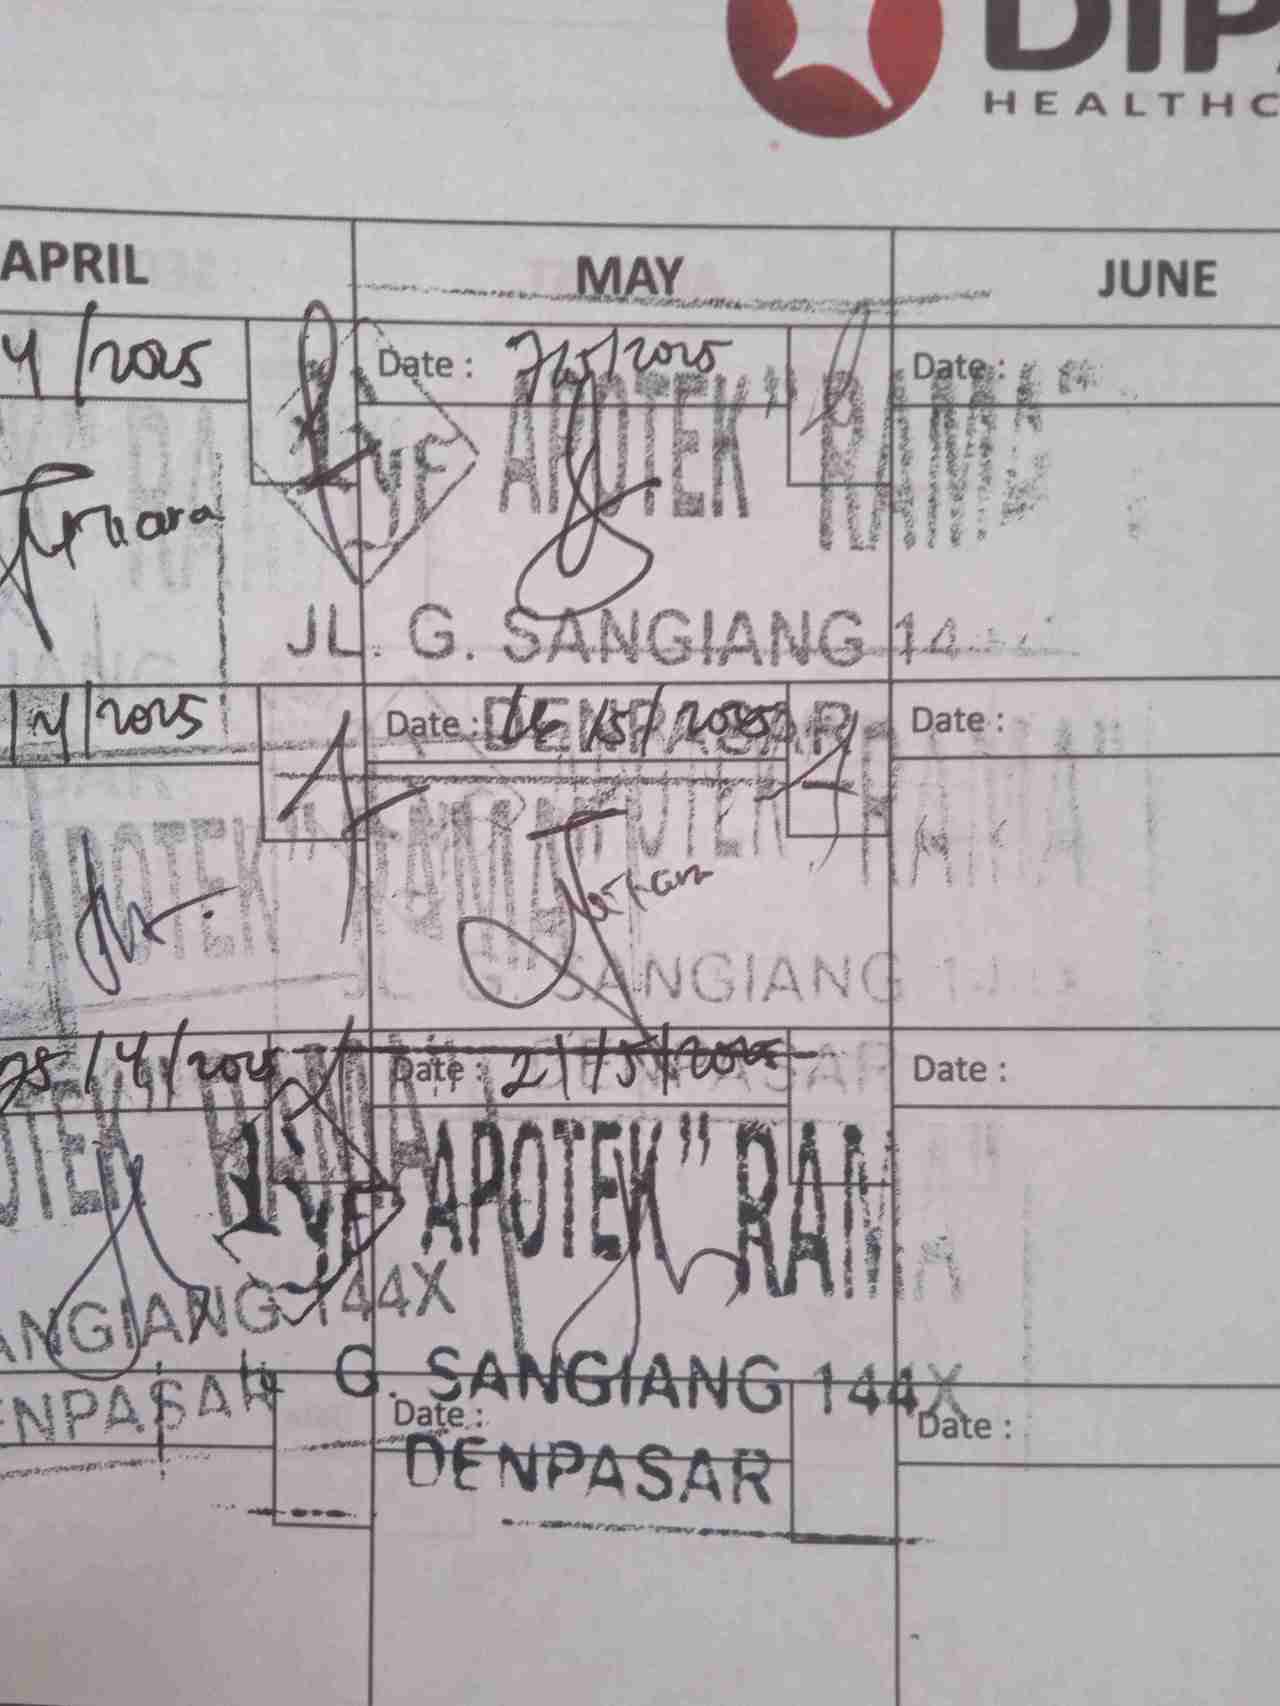 HEALTHC
APRIL
MAY
JUNE
4/2025
Date : 7/5/2025
Date :
APOTEK "RAMA"
JL. G. SANGIANG 14
/4/2025
Date : 16/5/2025
Date :
DENPASAR
APOTEK "RAMA"
APOTEK "RAMA"
JL G. SANGIANG 14
25/4/2025
Date : 21/5/2025
Date :
DENPASAR
OTEK "RAMA"
APOTEK "RAMA
ANGIANG 144X
G. SANGIANG 144X
ENPASAR
Date :
Date :
DENPASAR